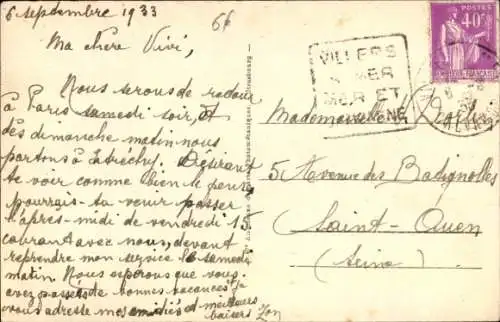 6 septembre 1933
6f
Ma chère Vivi,
Nous serons de retour
à Paris samedi soir, et
dès dimanche matin nous
partons à Etrechy. Désirant
te voir comme bien le pense
pourrais-tu venir passer
l'après-midi de vendredi 15
courant avec nous, devant
reprendre mon service le samedi
matin. Nous espérons que vous
avez passé de bonnes vacances. Je
vous adresse mes amitiés et meilleurs
baisers Zon
VILLERS
S MER
MER ET
POSTES
40c
Mademoiselle
5 Avenue des Batignolles
Saint-Ouen
(Seine)